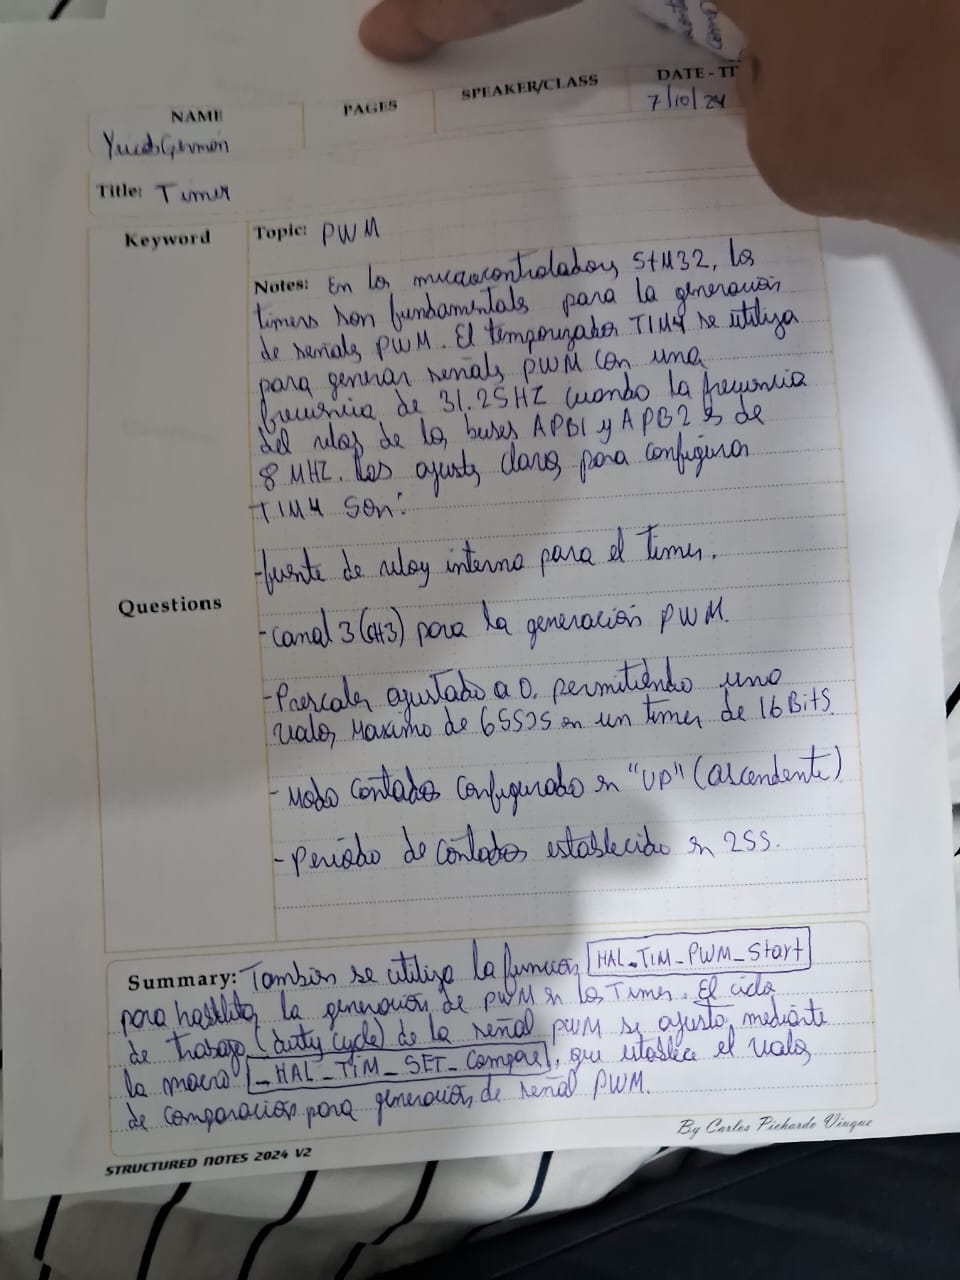 NAME
PAGES
SPEAKER/CLASS
DATE - TI
7/10/24
Title: Timer
Keyword
Topic: PWM
Notes: En los microcontroladores STM32, los
timers son fundamentals para la generación
de señals PWM. El temporizador TIM4 se utiliza
para generar señals PWM con una
frecuencia de 31.25HZ cuando la frecuencia
del reloj de los buses APB1 y APB2 es de
8 MHZ. Los ajusts claves para configurar
TIM4 son:
-fuente de reloj interno para el timer.
Questions
-canal 3 (CH3) para la generación PWM.
-Prescaler ajustado a 0, permitiendo uno
valor Maximo de 65535 en un timer de 16 Bits.
- Modo contador configurado en "UP" (ascendente)
- Periodo de contador establecido en 255.
Summary: Tambien se utiliza la función HAL_TIM_PWM_Start
para habilitar la generación de PWM en los Timer. El ciclo
de trabajo (duty cycle) de la señal PWM se ajusta mediante
la macro _HAL_TIM_SET_Compare, que establece el valor
de comparación para generación de señal PWM.
By Carlos Pichardo Viuque
STRUCTURED NOTES 2024 V2